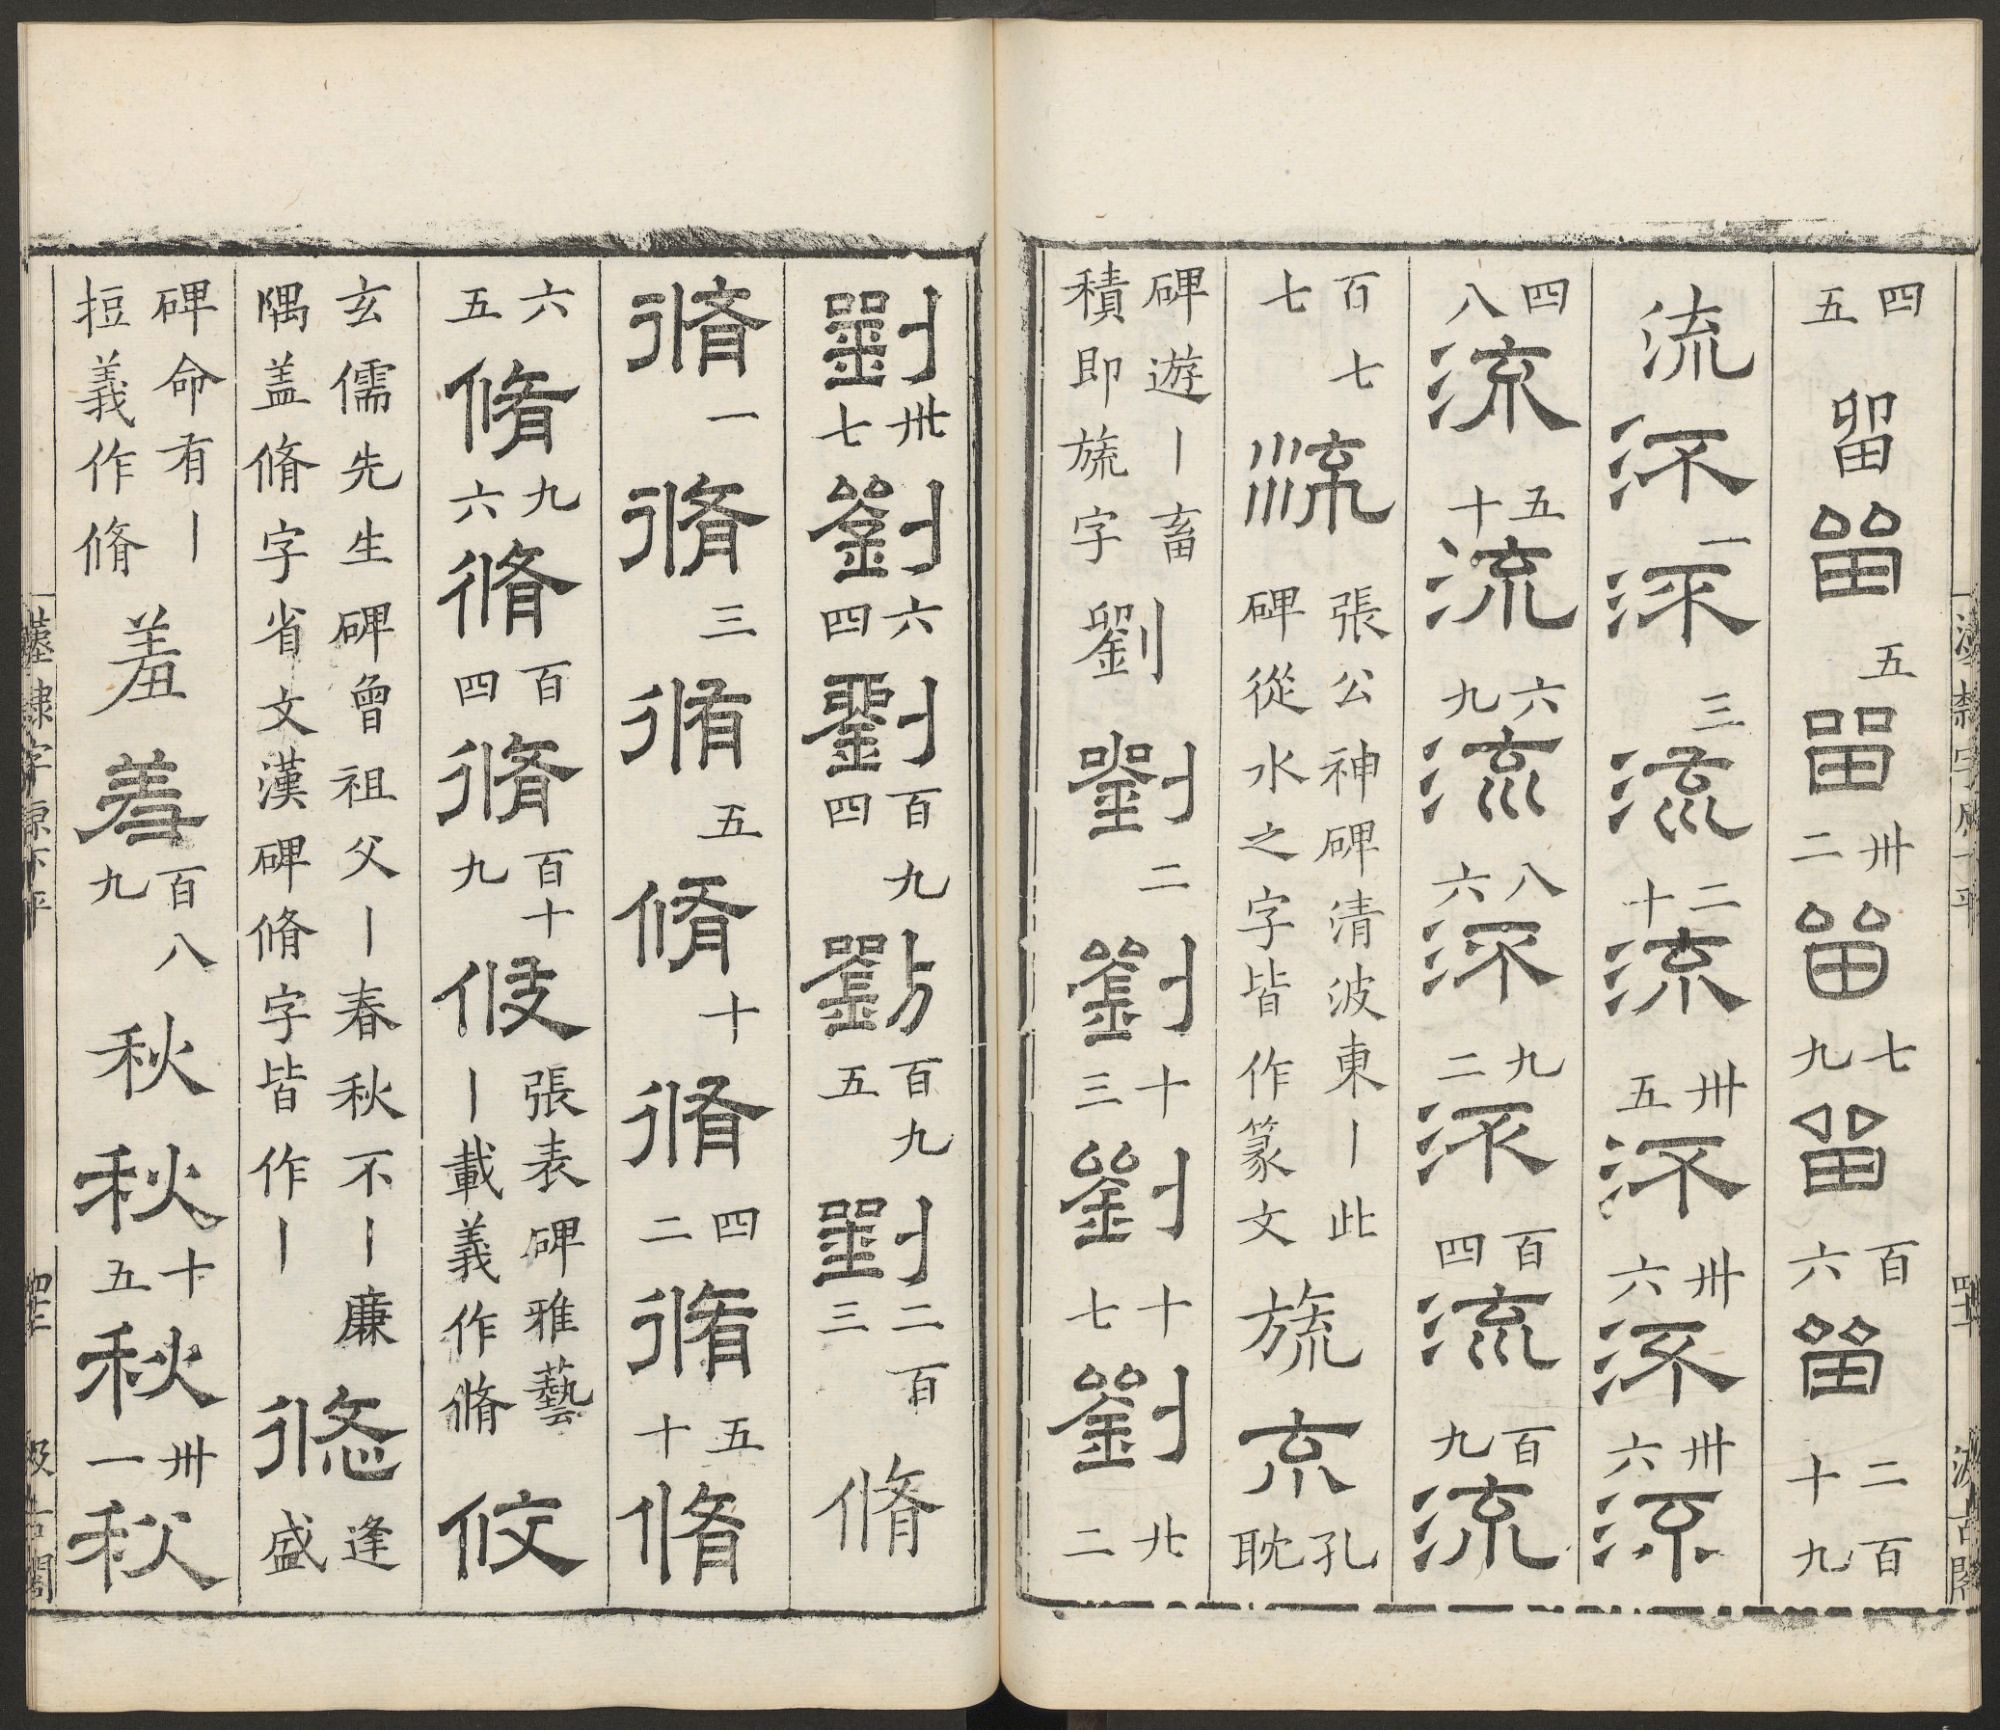 四五留留五留卌二留七九留百六留二百十九
流流一流三流二十流卌五流卌六流卌六流
四八流五十流六九流八六流九二流百四流百九流
百七七流張公神碑清波東丨此碑從水之字皆作篆文旒㐬孔耽
碑遊丨畜積即旒字劉劉二劉十三劉十七劉廿二
劉卅七劉六四劉百九四劉百九五劉二百三脩
脩一脩三脩五脩十脩四二脩五十脩
六五脩九六脩百四脩百十九張表碑雅藝丨載義作脩
玄儒先生碑曾祖父丨春秋不丨廉隅盖脩字省文漢碑脩字皆作丨逢盛
碑命有丨短義作脩羞羞百八九秋秋十五秋卌一秋
漢隸字原下平 汲古閣